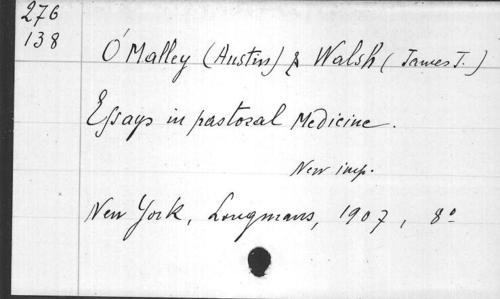 276
138
O'Malley (Austin) & Walsh (James J.)
Essays in pastoral Medicine.
New imp.
New York, Longmans, 1907, 8º